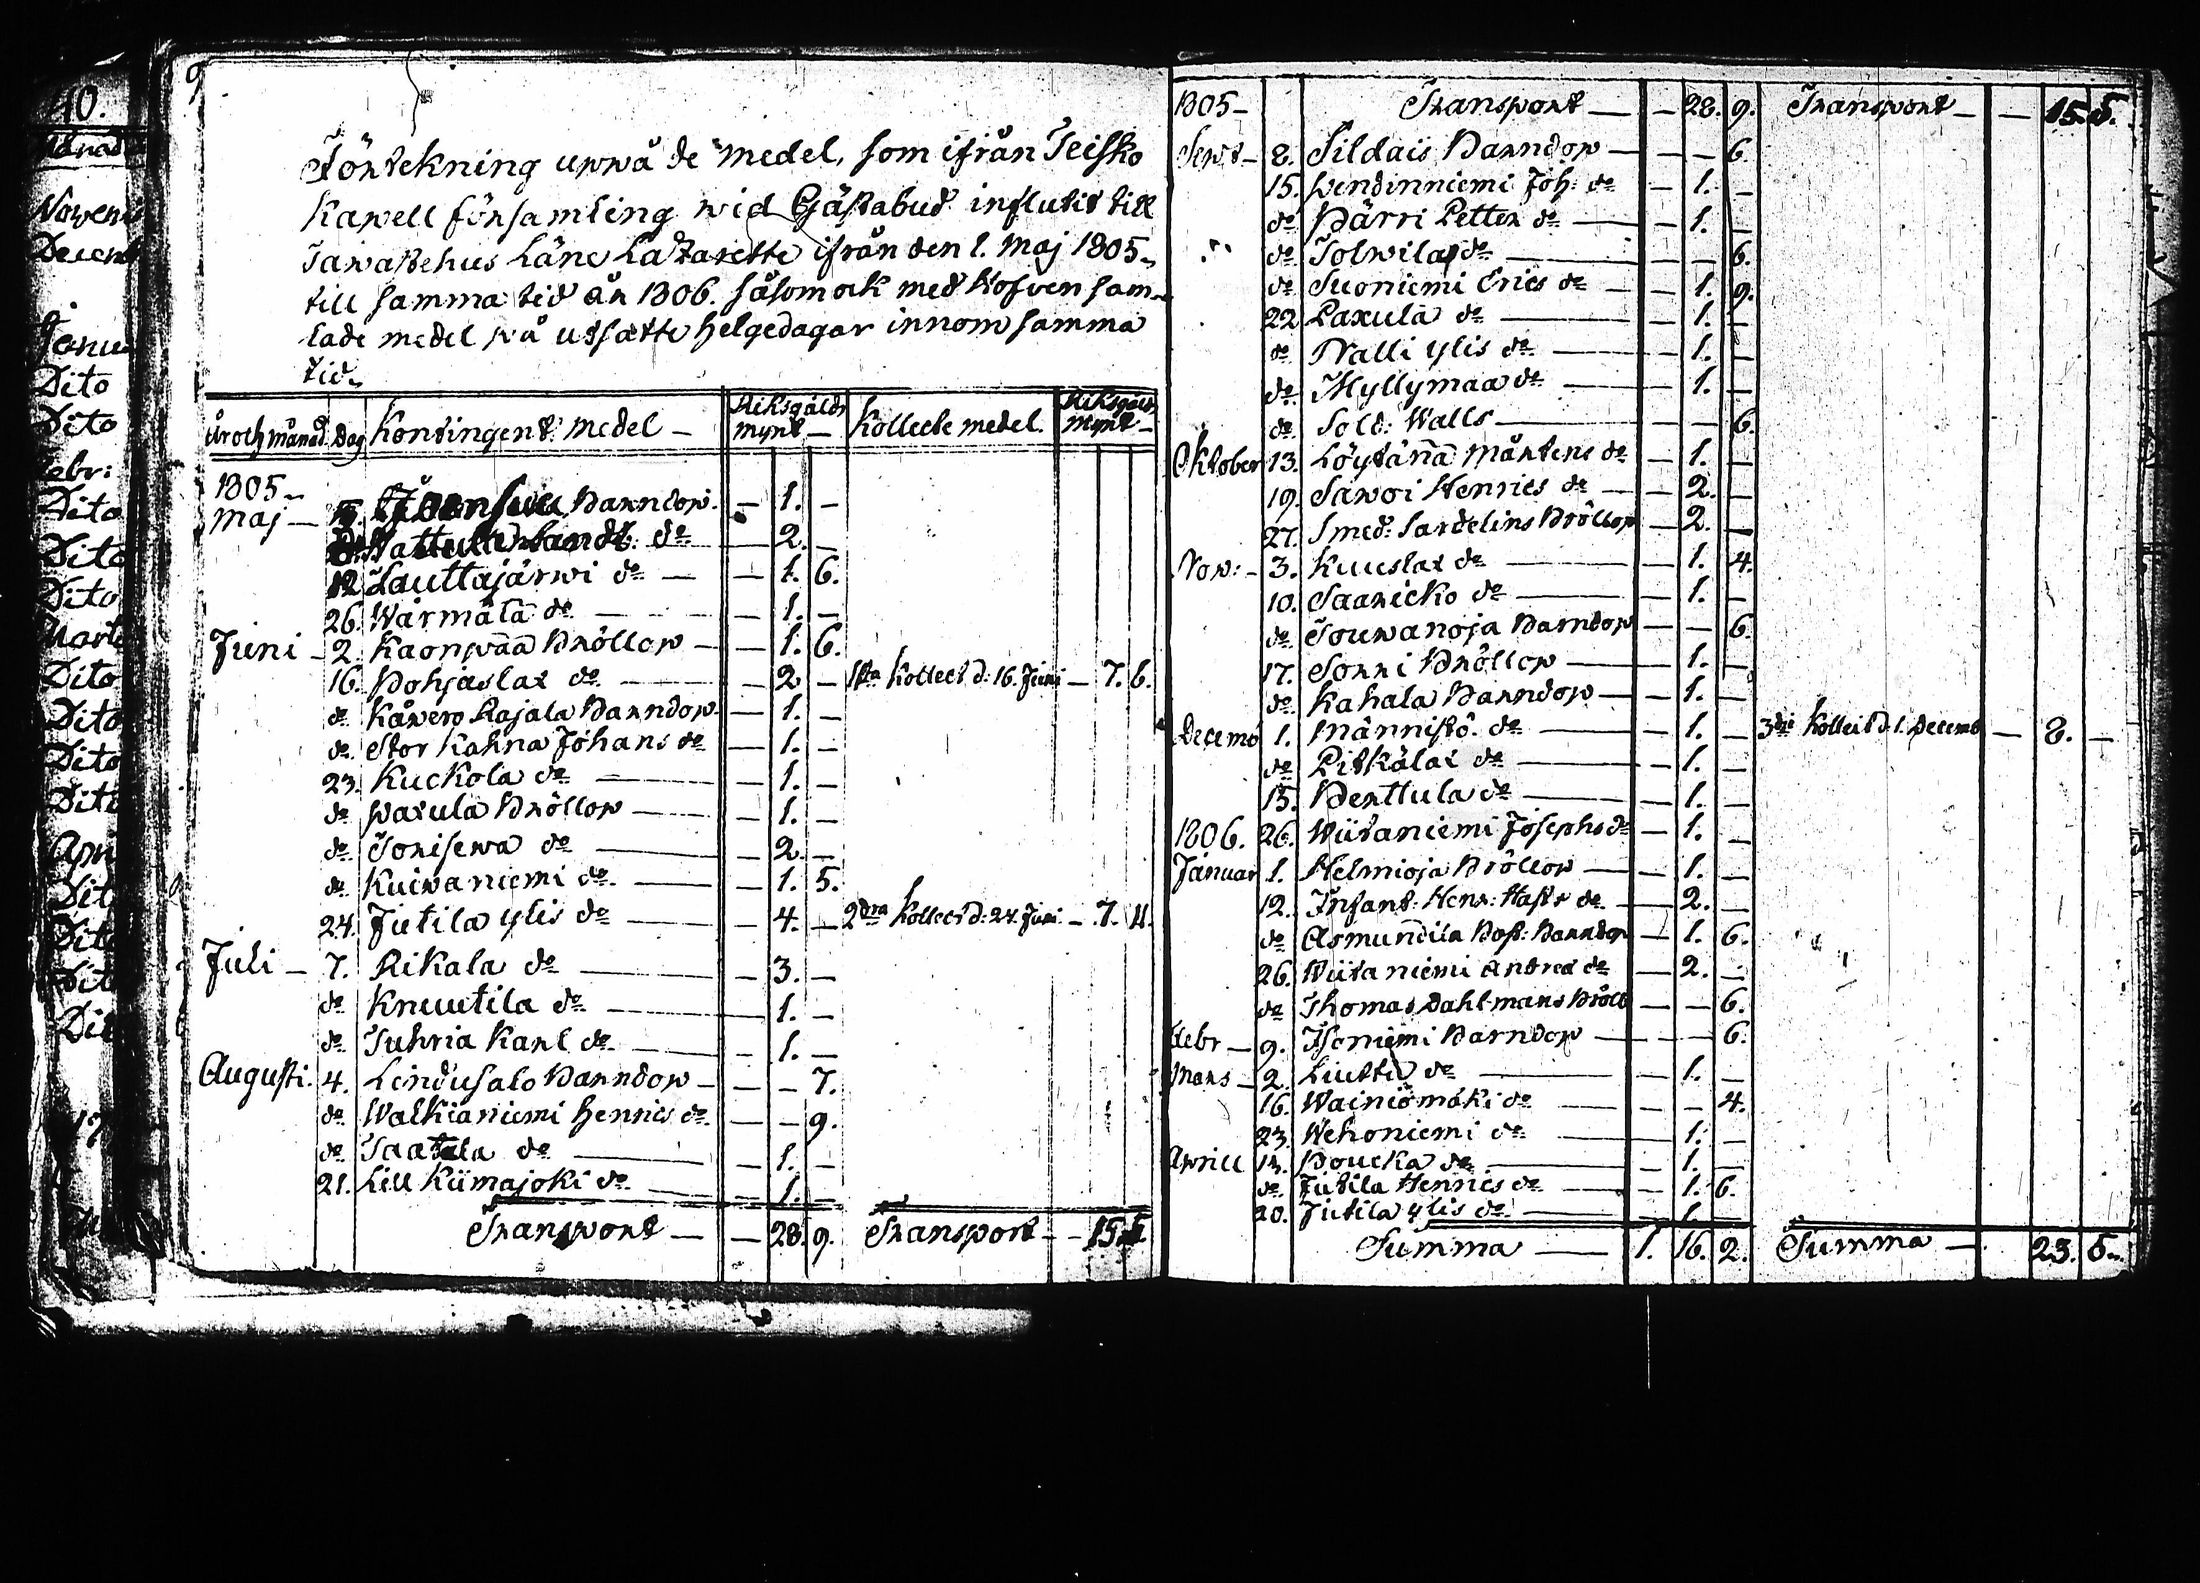 40.
9
Förtekning uppå de medel, som ifrån Teisko
Kapell församling wid Gästabud influtit till
Tawastehus Läns Lazarette ifrån den 1. Maj 1805.
till samma tid år 1806. såsom ock med Hofven sam-
lade medel på utsatte helgedagar innom samma
tid.
År och månad. Dag Kontingent: medel – Riksgälds mynt – Kollecte medel. Riksgälds mynt –
1805.
Maj – Barndop. – 1. –
do – 2. –
12. Lauttajärwi do – – 1. 6.
26. Wärmälä do – – 1. –
Juni – 2. Bröllop – – 1. 6.
16. Pohjaslax do – – 2 – 1sta Kollect d: 16. Juni – 7. 6.
do Käwero Rajala Barndop – – 1. –
do Stor Kahna Johans do – 1. –
23. Kuckola do – – 1. –
do Paxula Bröllop – – 1. –
do Torisewa do – – 2. –
do Kuiwaniemi do – – 1. 5.
24. Jutila ylis do – – 4. – 2dra Kollect d: 24. Juni – 7. 11.
Juli – 7. Rikala do – – 3. –
do Knuutila do – – 1. –
do Tuhria Karl do – – 1. –
Augusti. 4. Lindusalo Barndop – – – 7.
do Walkianiemi Henrics do – – – 9.
do Taatila do – – 1. –
21. Lill Kiimajoki do – – 1. –
Transport – – 28. 9. Transport – – 15. 5.
1805 – Transport – – 28. 9. Transport – – 15. 5.
Sept – 8. Sildais Barndop – – – 6.
15. Pendinniemi Joh: do – 1. –
do Pärri Petter do – – 1. –
do Tolwila do – – – 6.
do Suoniemi Erics do – – 1. 9.
22. Paxula do – – 1. –
do Walli ylis do – – 1. –
do Myllymaa do – – 1. –
do Sold: Walls – – – 6.
Oktober 13. Löytänä Mårtens do – 1. –
19. Sawoi Henrics do – – 2. –
27. Smed: Sardelins Bröllop – 2. –
Nov: – 3. Kuuslax do – – 1. 4.
10. Saaricko do – – 1. –
do Touwanoja Barndop – – 6.
17. Sorri Bröllop – – 1. –
do Kahala Barndop – – 1. –
Decemb 1. Männistö do – – 1. – 3die Kollect d. 1. Decemb – 8. –
do Pitkälax do – – 1. –
15. Penttula do – – 1. –
1806. 26. Wiitaniemi Josephs do – 1. –
Januar 1. Helmioja Bröllop – – 1. –
12. Infant: Henr: do – – 2. –
do Asmundila Bost: Barndop – 1. 6.
26. Wiitaniemi Andres do – 2. –
do Thomas Dahlmans Bröll – – 6.
Febr – 9. Isoniemi Barndop – – – 6.
Mars – 2. Liutta do – – 1. –
16. Wäiniömäki do – – – 4.
23. Wehoniemi do – – 1. –
Aprill 14. Poucka do – – 1. –
do Jutila Henrics do – – 1. 6.
20. Jutila ylis do – – 1. –
Summa – 1. 16. 2. Summa – 23. 5.